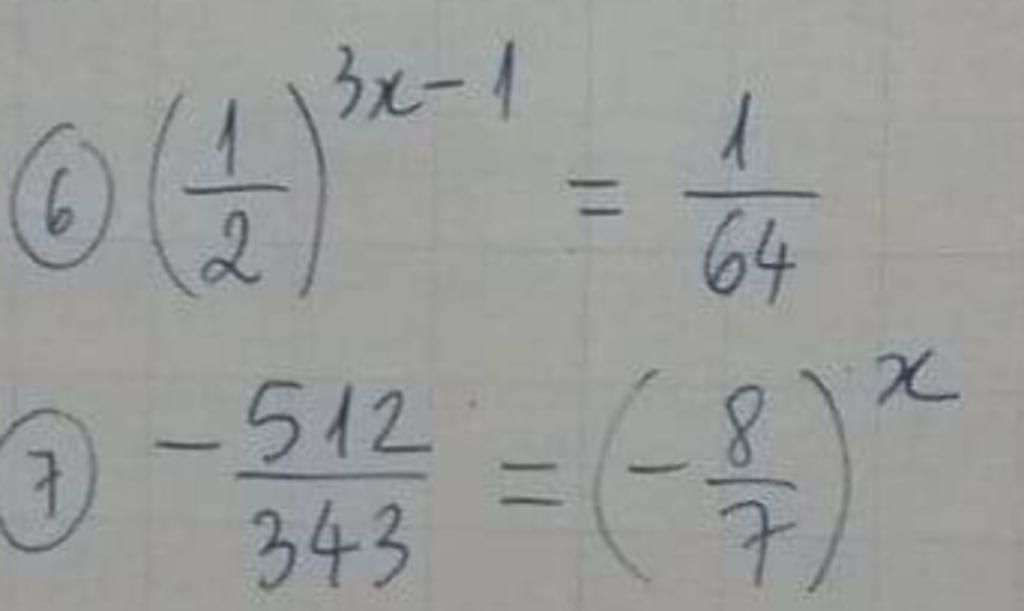 ⑥ (1/2)^(3x-1) = 1/64
⑦ -512/343 = (-8/7)^x